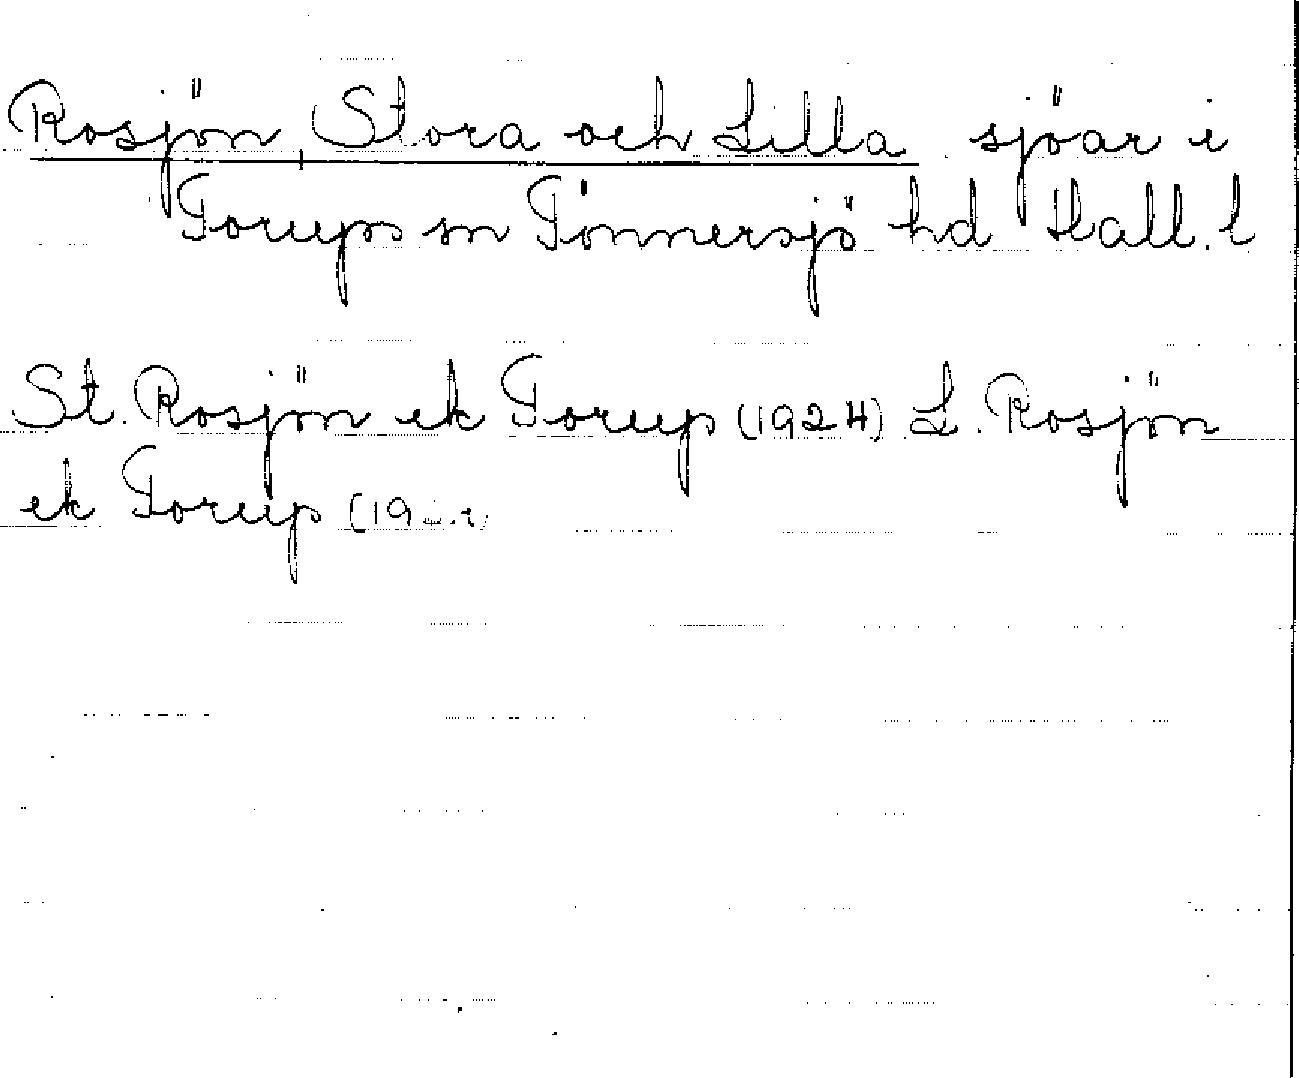 Rosjön, Stora och Lilla sjöar i
Torups sn Tönnersjö hd Hall. l
St. Rosjön ek Torup (1924) L. Rosjön
ek Torup